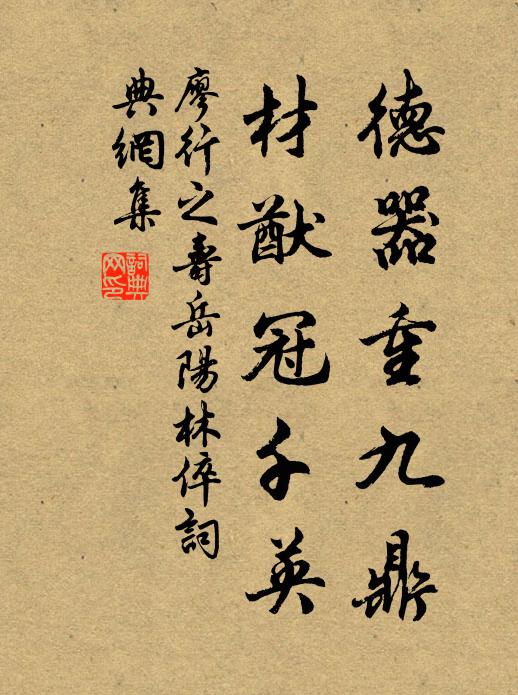 德器重九鼎
材猷冠千英
廖行之寿岳陽林倅詞
典網集
詞典
网印